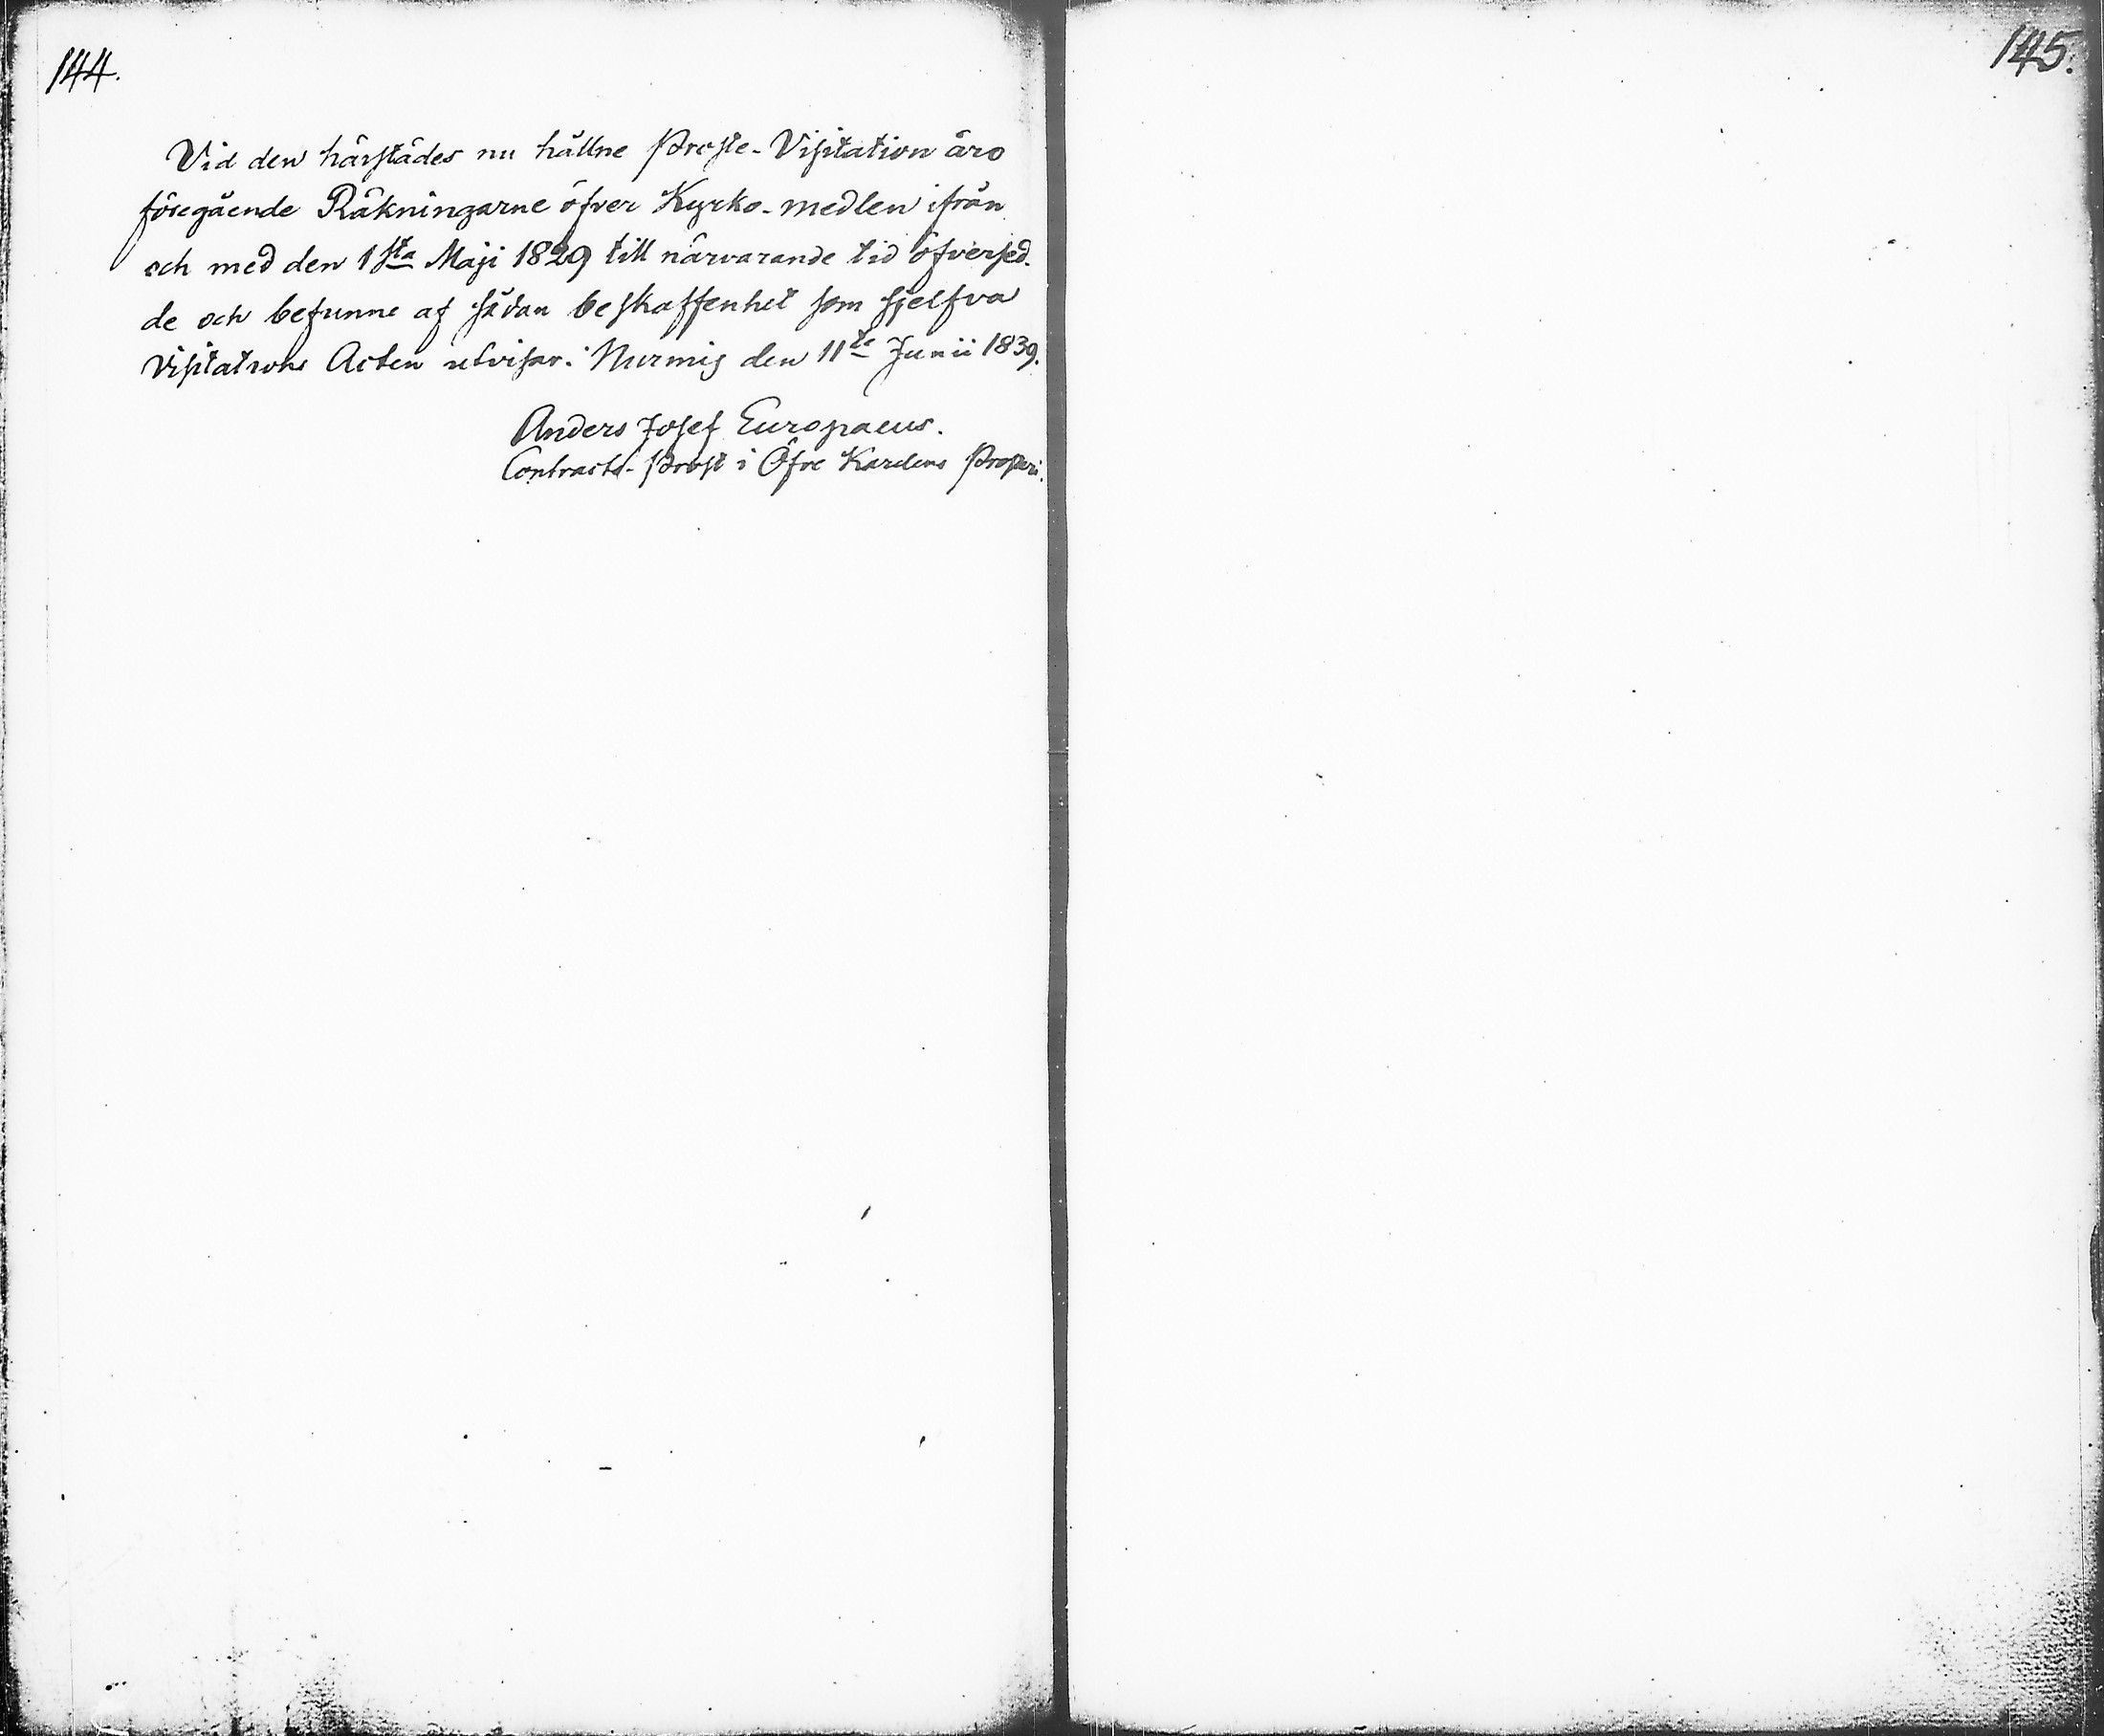 144.
145.
Vid den härstädes nu hållne Proste-Visitation äro
föregående Räkningarne öfver Kyrko-medlen ifrån
och med den 1sta Maji 1829 till närvarande tid öfversed-
de och befunne af sådan beskaffenhet som sjelfva
Visitations Acten utvisar. Nurmis den 11te Junii 1839.
Anders Josef Europaeus.
Contracts-Prost i Öfre Karelens Prosteri.